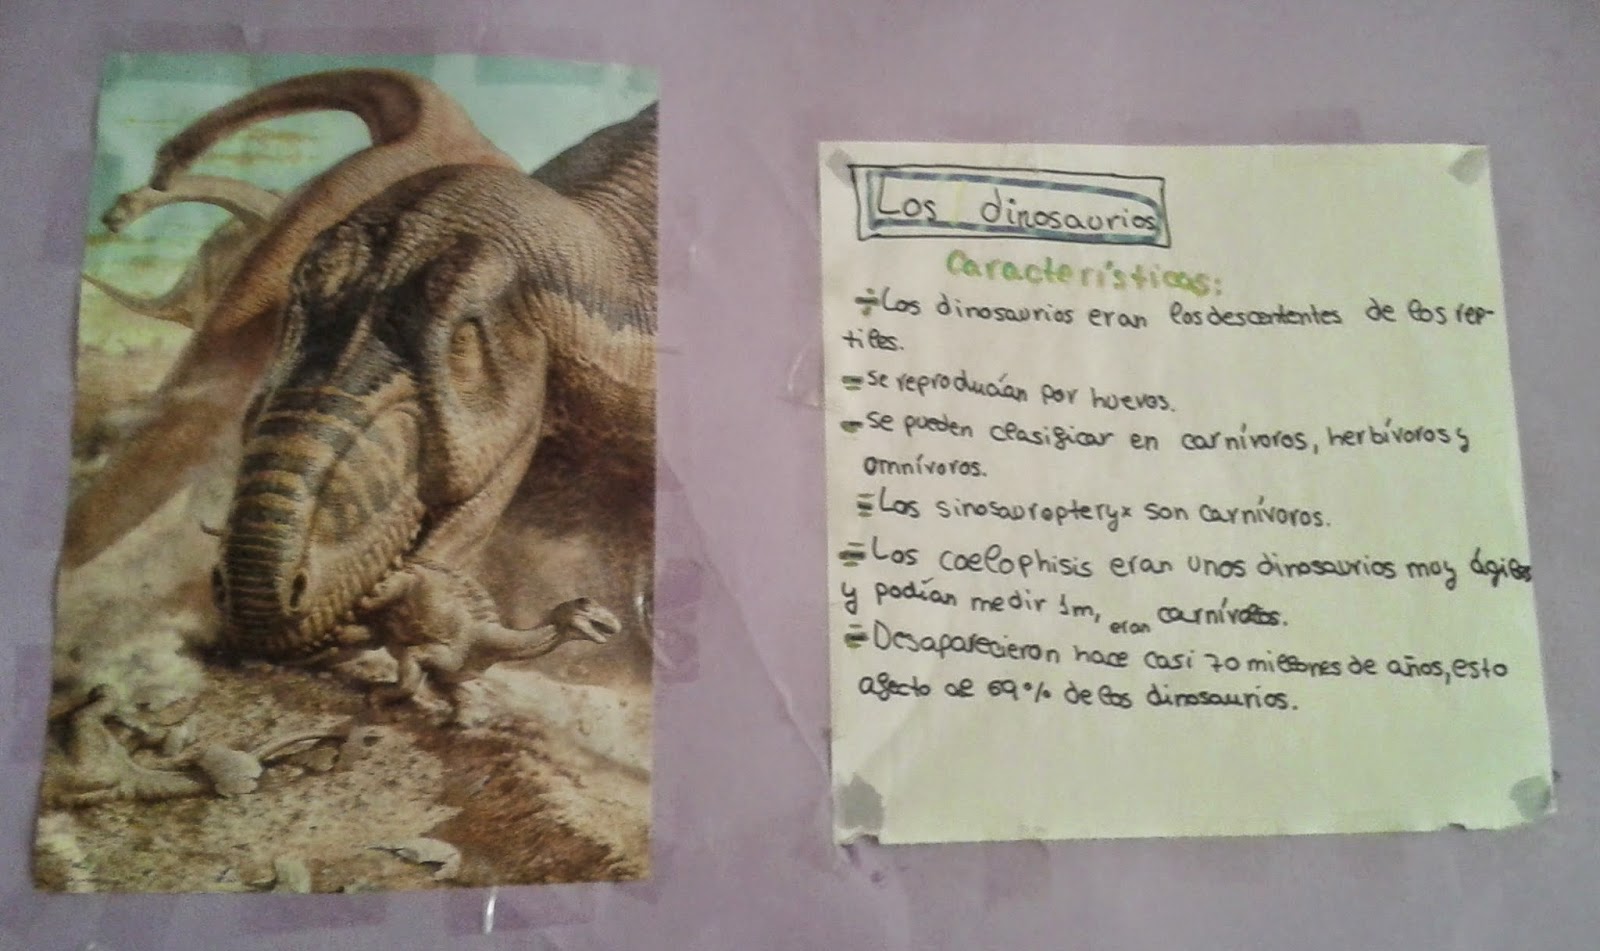 Los dinosaurios
Características:
Los dinosaurios eran los descententes de los rep-
tiles.
- se reproducían por huevos.
- se pueden clasificar en carnívoros, herbívoros y
omnívoros.
- Los sinosauropteryx son carnívoros.
- Los coelophisis eran unos dinosaurios muy ágiles
y podían medir 1m, eran carnívoros.
- Desaparecieron hace casi 70 millones de años, esto
afecto al 69% de los dinosaurios.